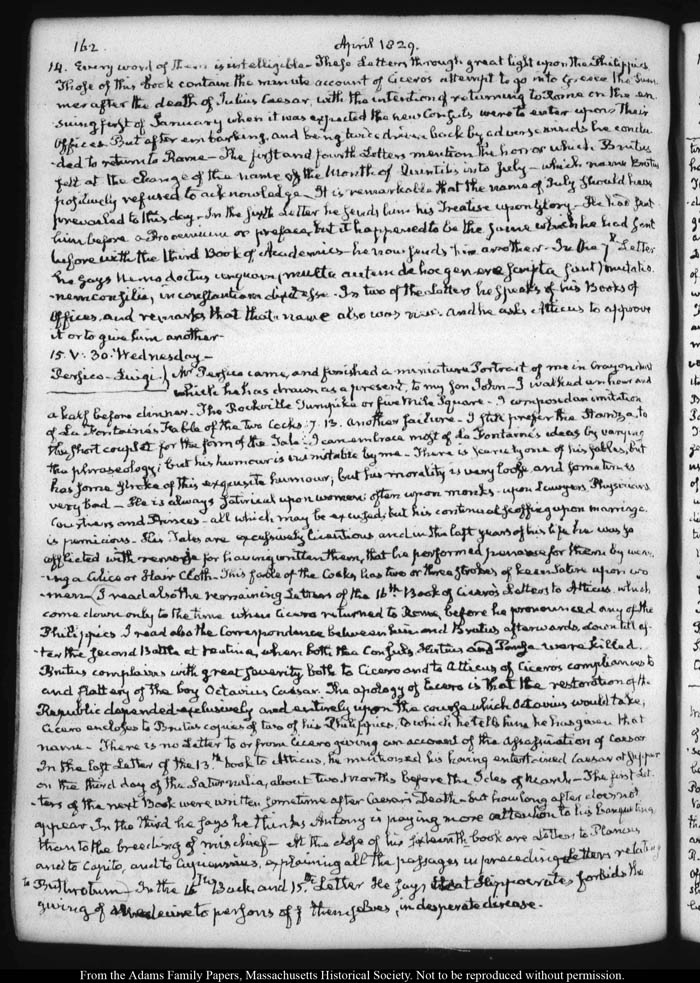 162.
April 1829.
14. Every word of them is intelligible. These Letters through great light upon the Philippics.
Those of this book contain the minute account of Cicero's attempt to go into Greece the Sum-
mer after the death of Julius Caesar, with the intention of returning to Rome on the en-
suing first of January when it was expected the new Consuls were to enter upon their
Offices. But after embarking, and being twice driven back by adverse winds he conclu-
ded to return to Rome — The first and fourth Letters mention the horror which Brutus
felt at the change of the name of the Month of Quintilis into July — which name Brutus
positively refused to acknowledge. It is remarkable that the name of July should have
prevailed to this day. In the sixth Letter he sends him his Treatise upon Glory — He had sent
him before a Prooemium or preface, but it happened to be the same which he had sent
before with the third Book of Academics — he now sends him another. In the 7th Letter
he says Nemo doctus unquam, multa autem de hoc genere scripta sunt, mutatio-
nem consilii, inconstantiam dixit esse. In two of the Letters he speaks of his Books of
Offices, and remarks that that name also was new. and he asks Atticus to approve
it or to give him another —
15. V: 30. Wednesday —
Persico — Luigi } Mr Persico came, and finished a miniature Portrait of me in Crayon
which he has drawn as a present, to my Son John — I walked an hour and
a half before dinner. The Rockville Turnpike or five Mile Square — I composed an imitation
of La Fontaine's Fable of the two Cocks. 7. 13. another failure — I still prefer the Stanza, to
the short couplet for the form of the Tale. I can embrace most of La Fontaine's ideas by varying
the phraseology; but his humour is inimitable by me. There is scarcely one of his fables, but
has some stroke of this exquisite humour; but his morality is very loose and sometimes
very bad — He is always satirical upon women; often upon monks — upon Lawyers, Physicians
Courtiers and Princes — all which may be excused; but his continual scoffing upon marriage,
is pernicious. His Tales are excessively licentious and in the last years of his life he was so
afflicted with remorse for having written them, that he performed penance for them by wear-
ing a Cilice or Hair Cloth — This fable of the Cocks has two or three strokes of keen Satire upon wo-
men — I read also the remaining Letters of the 16th Book of Cicero's Letters to Atticus. which
come down only to the time when Cicero returned to Rome, before he pronounced any of the
Philippics. I read also the Correspondence between him and Brutus afterwards, down till af-
ter the second Battle at Mutina, when both the Consuls Hirtius and Pansa were killed.
Brutus complains with great severity both to Cicero and to Atticus of Cicero's compliances to
and flattery of the boy Octavius Caesar. The apology of Cicero is that the restoration of the
Republic depended exclusively and entirely upon the course which Octavius would take,
Cicero encloses to Brutus copies of two of his Philippics, to which he tells him he has given that
name — There is no Letter to or from Cicero giving an account of the assassination of Caesar
In the last Letter of the 13th book to Atticus, he mentioned his having entertained Caesar at Supper
on the third day of the Saturnalia, about two Months before the Ides of March — The first Let-
ters of the next Book were written sometime after Caesar's Death — but how long after does not
appear. In the third he says he thinks Antony is paying more attention to his banqueting
than to the breeding of mischief — At the close of his sixteenth book are Letters to Plancus
and to Capito, and to Cupiennius, explaining all the passages in preceding Letters relating
to Buthrotum — In the 16th Book, and 15th Letter He says that Hippocrates forbids the
giving of Medicine to persons off themselves, in desperate disease.
From the Adams Family Papers, Massachusetts Historical Society. Not to be reproduced without permission.